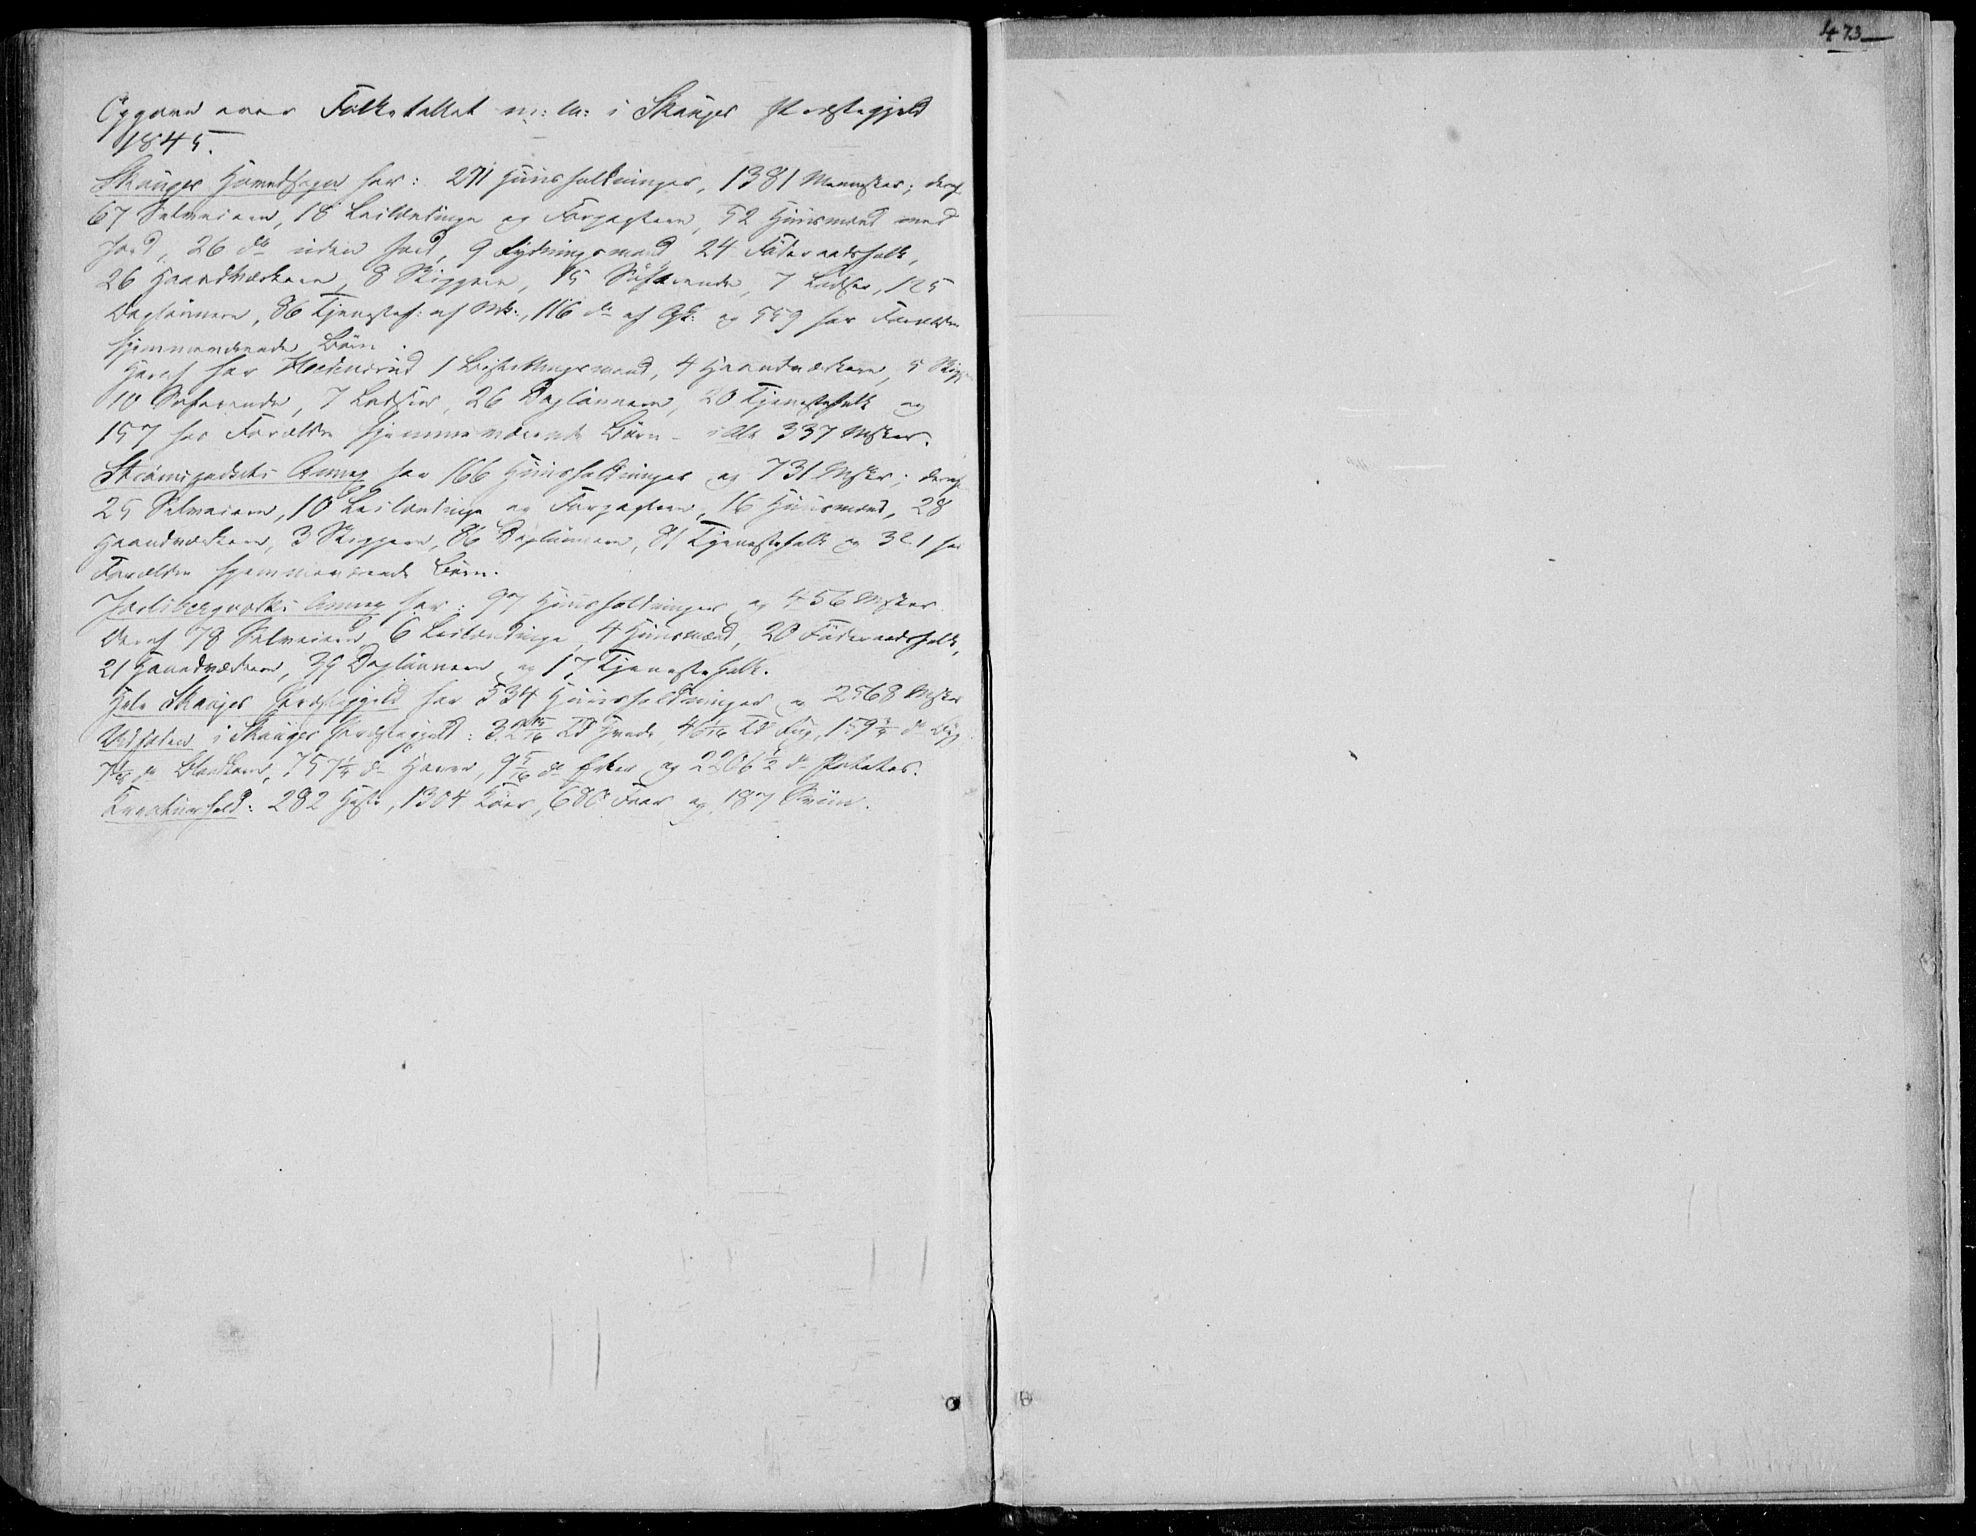 473
Opgave over Folketallet m: m: i Skouger Præstegjeld
1845.
Skouger Hovedsogn har: 271 Huusholdninger, 1381 Mennesker; deraf
67 Selveiere, 18 Leilændinge og Forpagtere, 52 Huusmænd med
Jord, 26 do uden Jord, 9 Rydningsmænd, 24 Föderaadsfolk,
26 Haandværkere, 8 Skippere, 15 Söfarende, 7 Lodser, 125
Daglönnere, 86 Tjenestef: af Mk:, 116 do af Qk: og 559 hos Forældre
hjemmeværende Börn.
Heraf har Holmsrud 1 Bestillingsmand, 4 Haandværkere, 5
10 Söfarende, 7 Lodser, 26 Daglönnere, 20 Tjenestefolk og
157 hos Forældre hjemmeværende Börn - i Alt 337 Msker.
Strömsgodsets Annex har 166 Huusholdninger og 731 Msker; deraf
25 Selveiere, 10 Leilændinge og Forpagtere, 16 Huusmænd, 28
Haandværkere, 3 Skippere, 86 Daglönnere, 81 Tjenestefolk og 321 hos
Forældre hjemmeværende Börn.
Jarlsbergværks Annex har: 97 Huusholdninger og 456 Msker.
Deraf 78 Selveiere, 6 Leilændinge, 4 Huusmænd, 20 Föderaadsfolk,
21 Haandværkere, 39 Daglönnere og 17 Tjenestefolk.
Hele Skouger Præstegjeld har 534 Huusholdninger og 2568 Msker
Udsæden i Skouger Præstegjeld: Td Hvede, 46 1/16 Td Rug, 159 3/4 do Byg
do Blandkorn, 757 1/4 do Havre, 9 5/16 do Erter og 2206 1/2 do Poteter.
Kreaturhold: 282 Heste, 1304 Köer, 680 Faar og 187 Sviin.